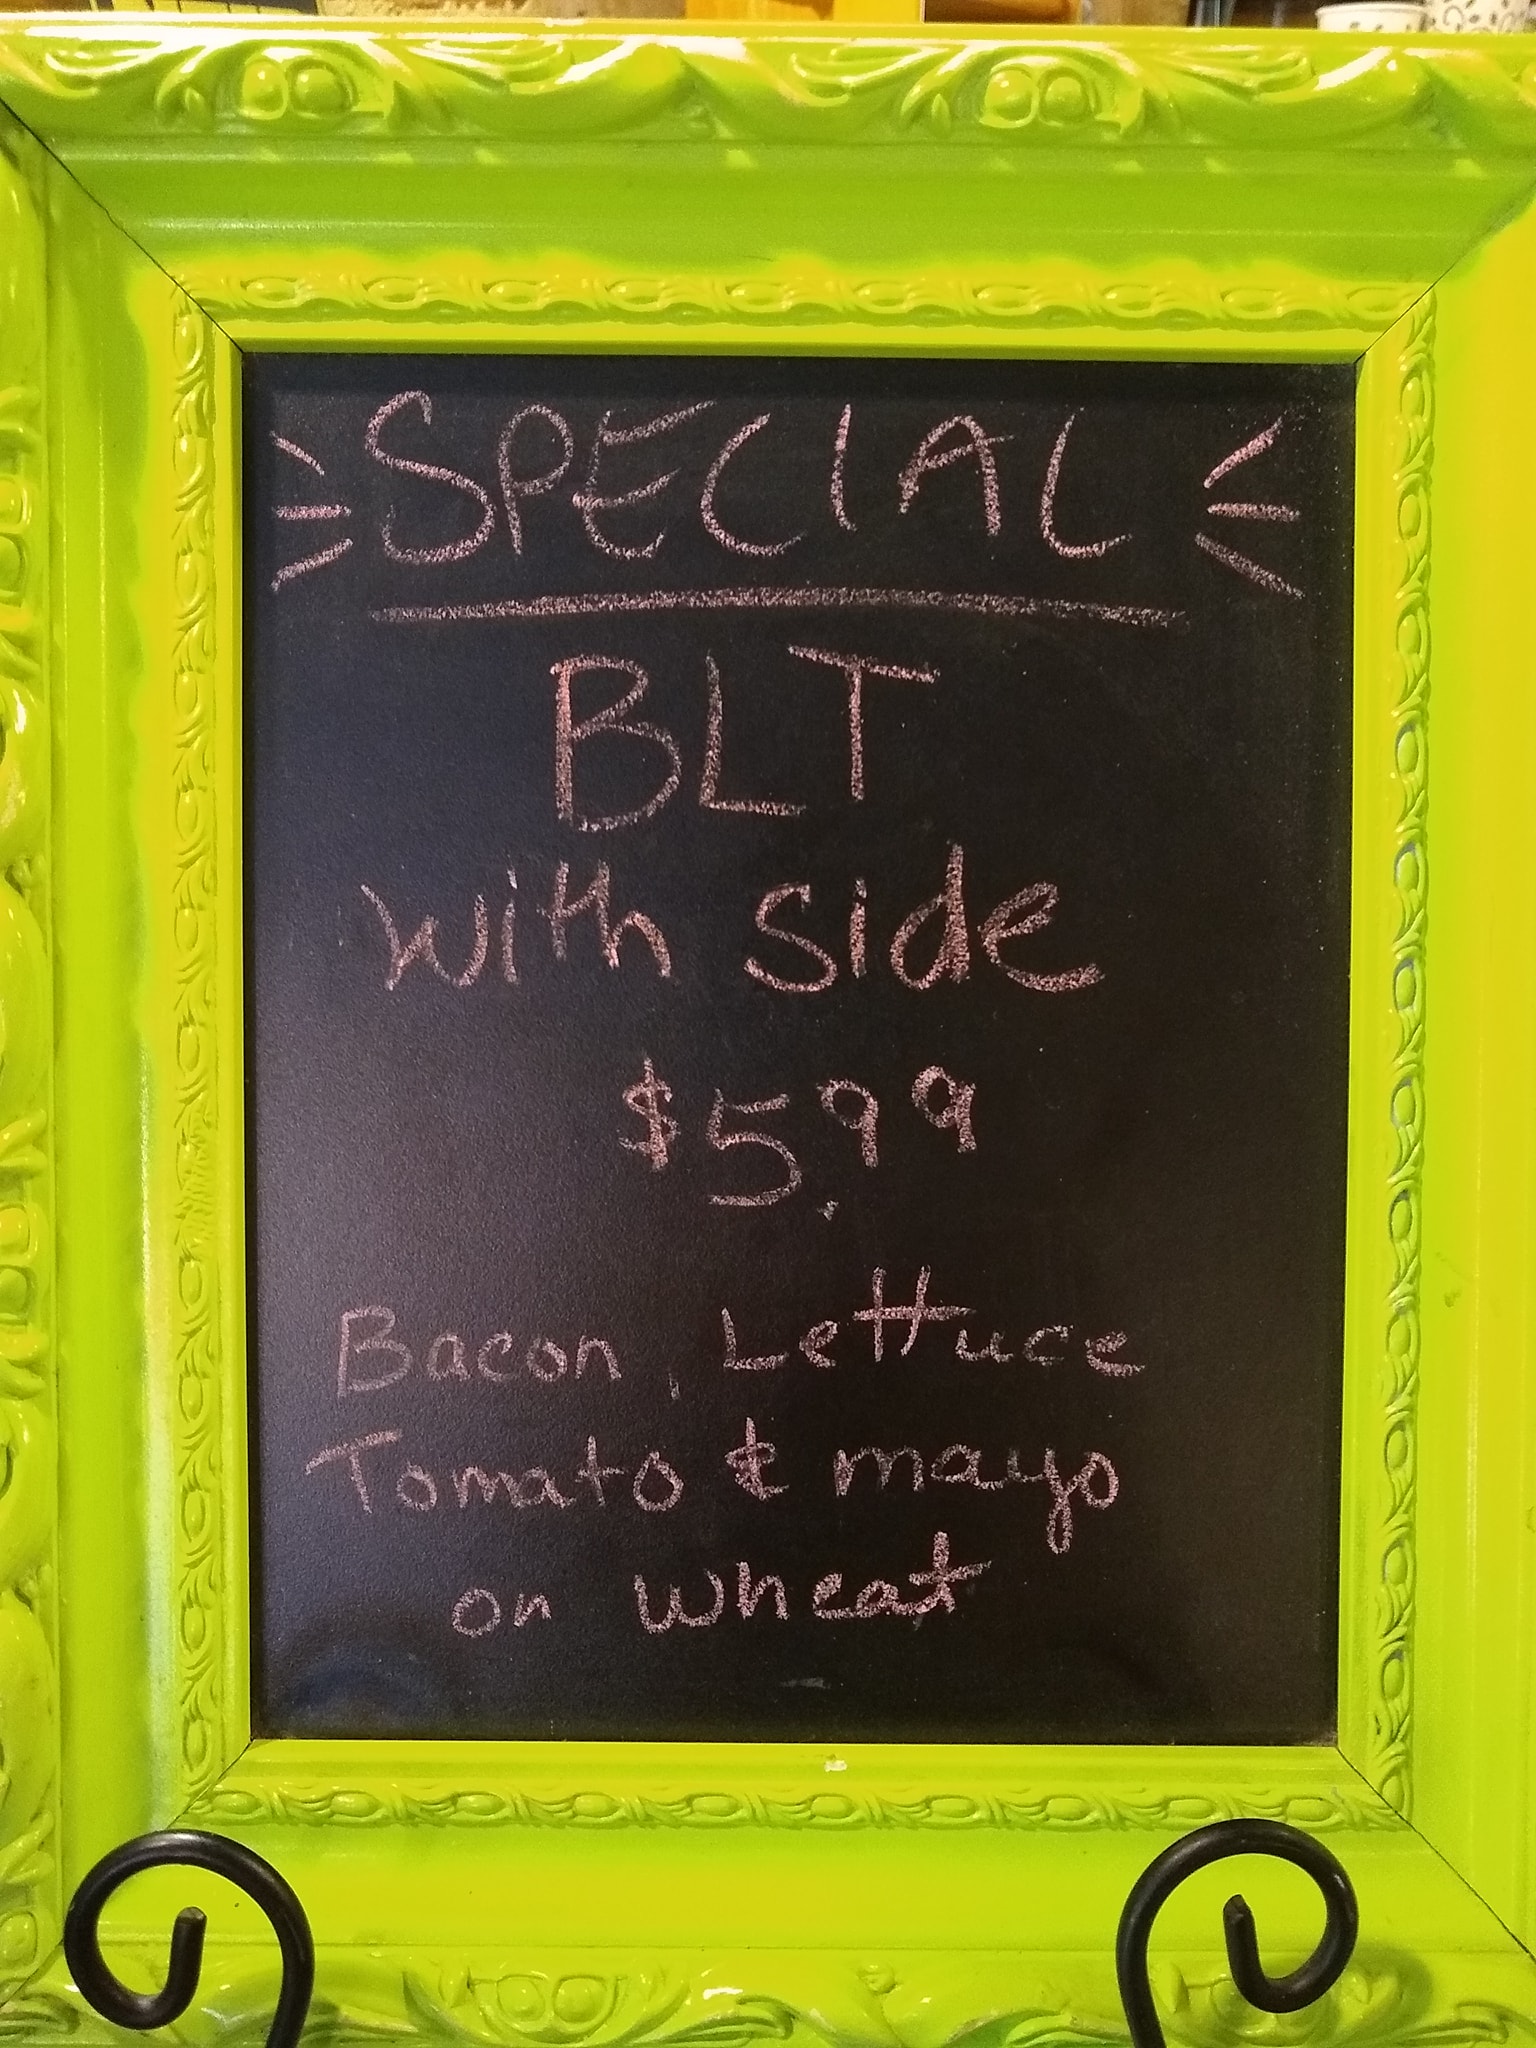 SPECIAL
BLT
with side
$5.99
Bacon, Lettuce
Tomato & mayo
on wheat